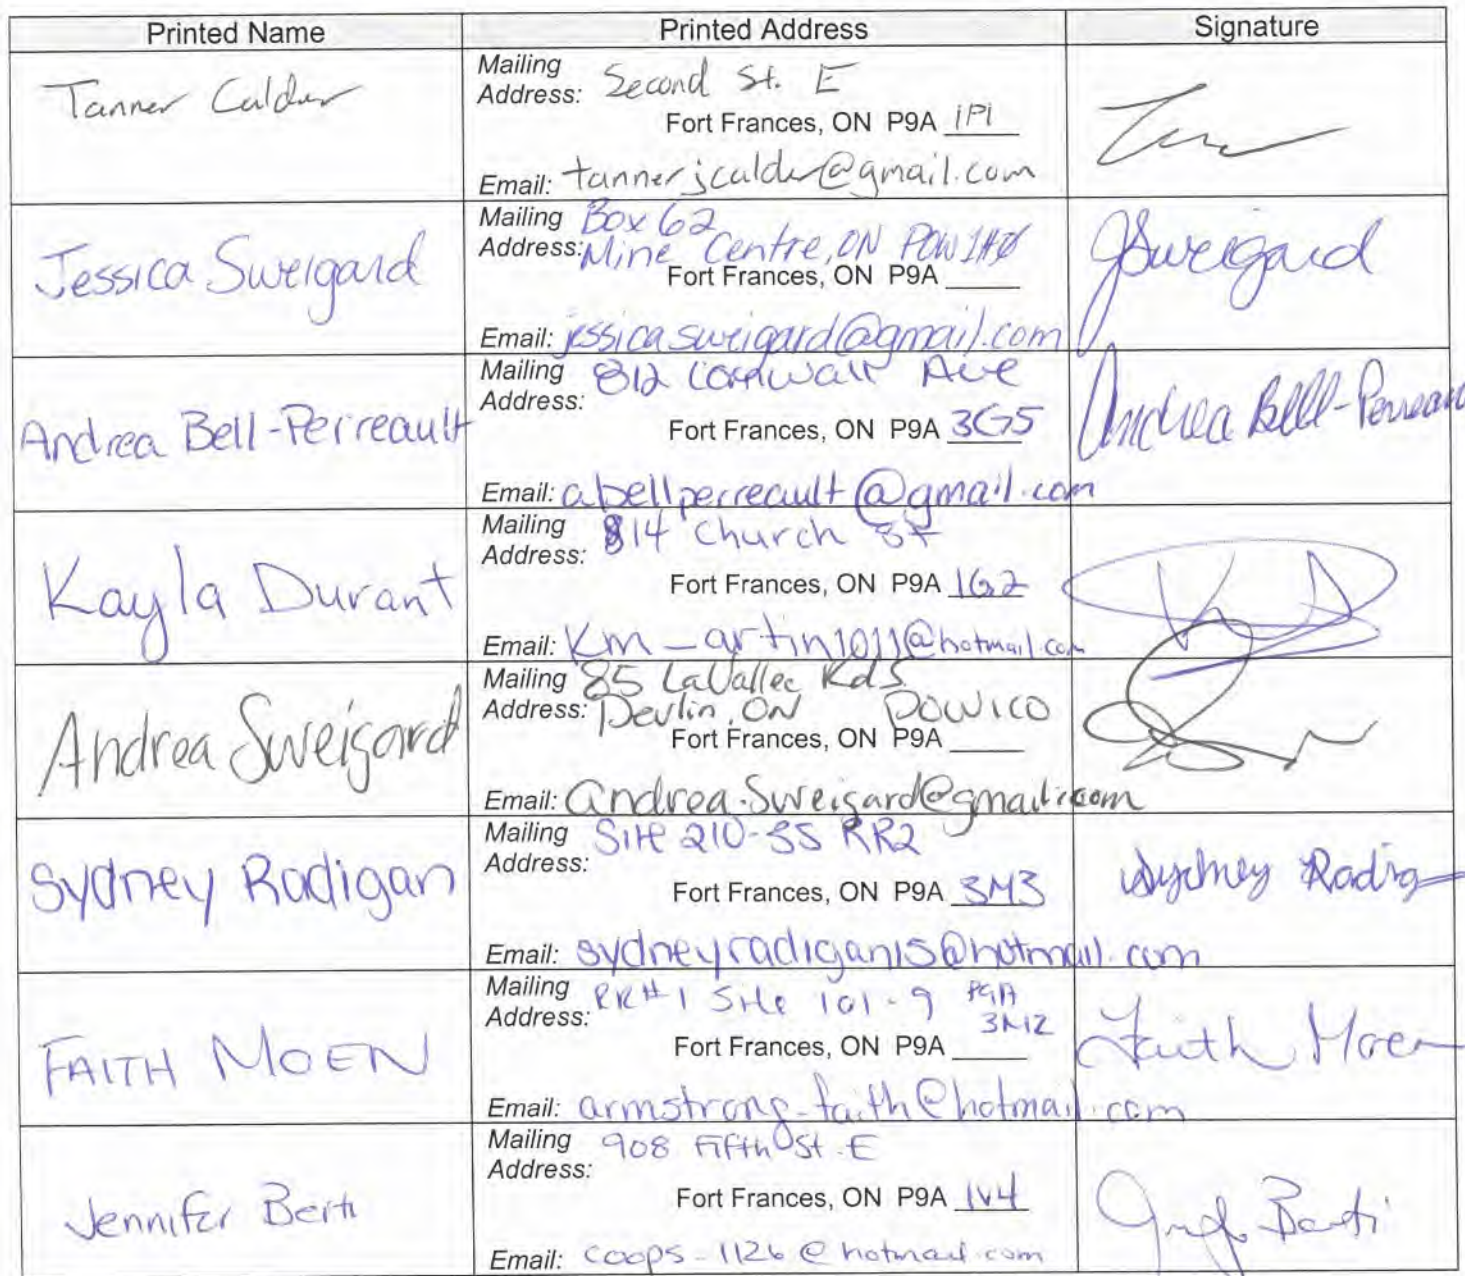 Printed Name Printed Address Signature
Tanner Calder
Mailing
Address: Second St. E
Fort Frances, ON P9A 1P1
Email: tannerjcalder@gmail.com
Jessica Sweigard
Mailing Box 62
Address: Mine Centre, ON P0W 1H0
Fort Frances, ON P9A
Email: jessicasweigard@gmail.com
JSweigard
Andrea Bell-Perreault
Mailing 812 Cornwall Ave
Address:
Fort Frances, ON P9A 3G5
Email: abellperreault@gmail.com
Andrea Bell-Perreault
Kayla Durant
Mailing 814 Church St
Address:
Fort Frances, ON P9A 1G2
Email: Km_artin1011@hotmail.com
Andrea Sweigard
Mailing 85 LaVallee Rd S
Address: Devlin, ON P0W1C0
Fort Frances, ON P9A
Email: andrea.sweigard@gmail.com
Sydney Radigan
Mailing Site 210-35 RR2
Address:
Fort Frances, ON P9A 3M3
Email: sydneyradigan15@hotmail.com
Sydney Radig
FAITH MOEN
Mailing RR#1 Site 101-9 P9A
Address: 3M2
Fort Frances, ON P9A
Email: armstrong_faith@hotmail.com
Faith Moen
Jennifer Berti
Mailing 908 Fifth St. E
Address:
Fort Frances, ON P9A 1V4
Email: coops-1126@hotmail.com